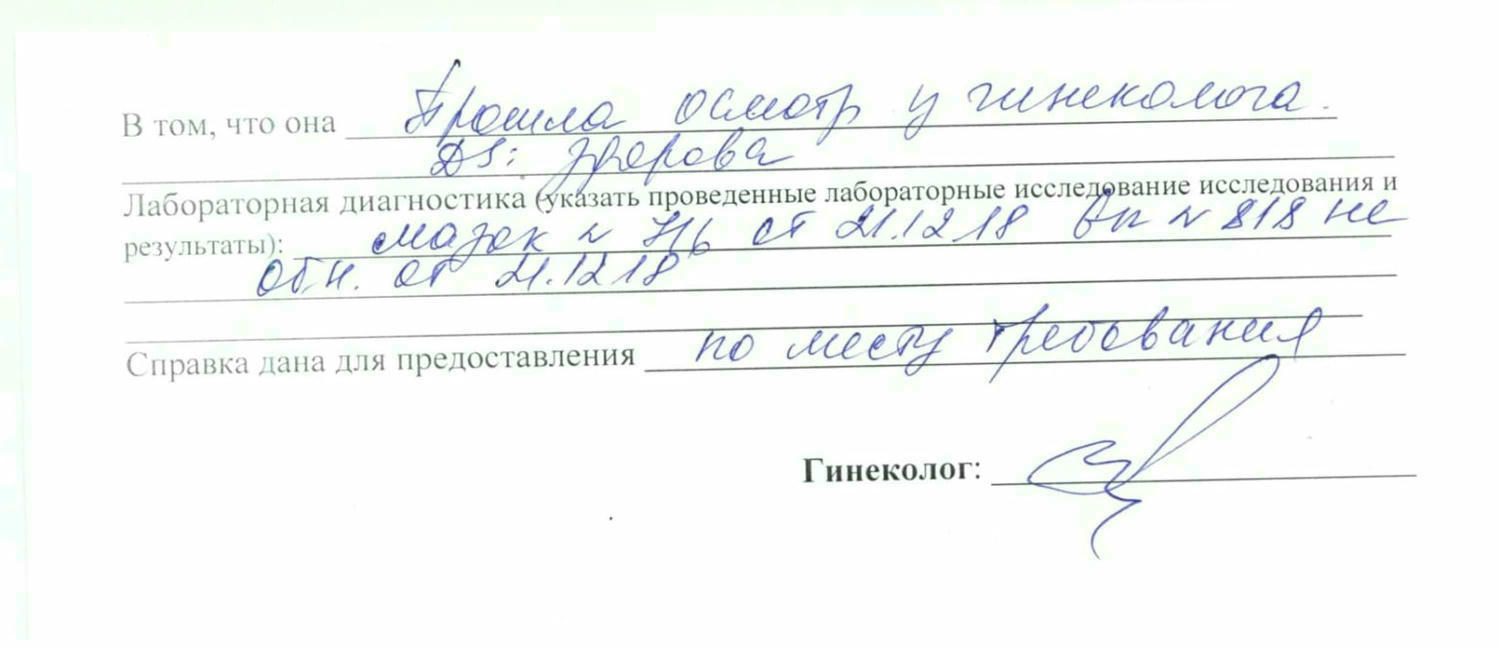 В том, что она Прошла осмотр у гинеколога.
DS: здорова
Лабораторная диагностика (указать проведенные лабораторные исследование исследования и
результаты): мазок N 716 от 21.12.18 вп N 818 не
обн. от 21.12.18
Справка дана для предоставления по месту требования
Гинеколог: